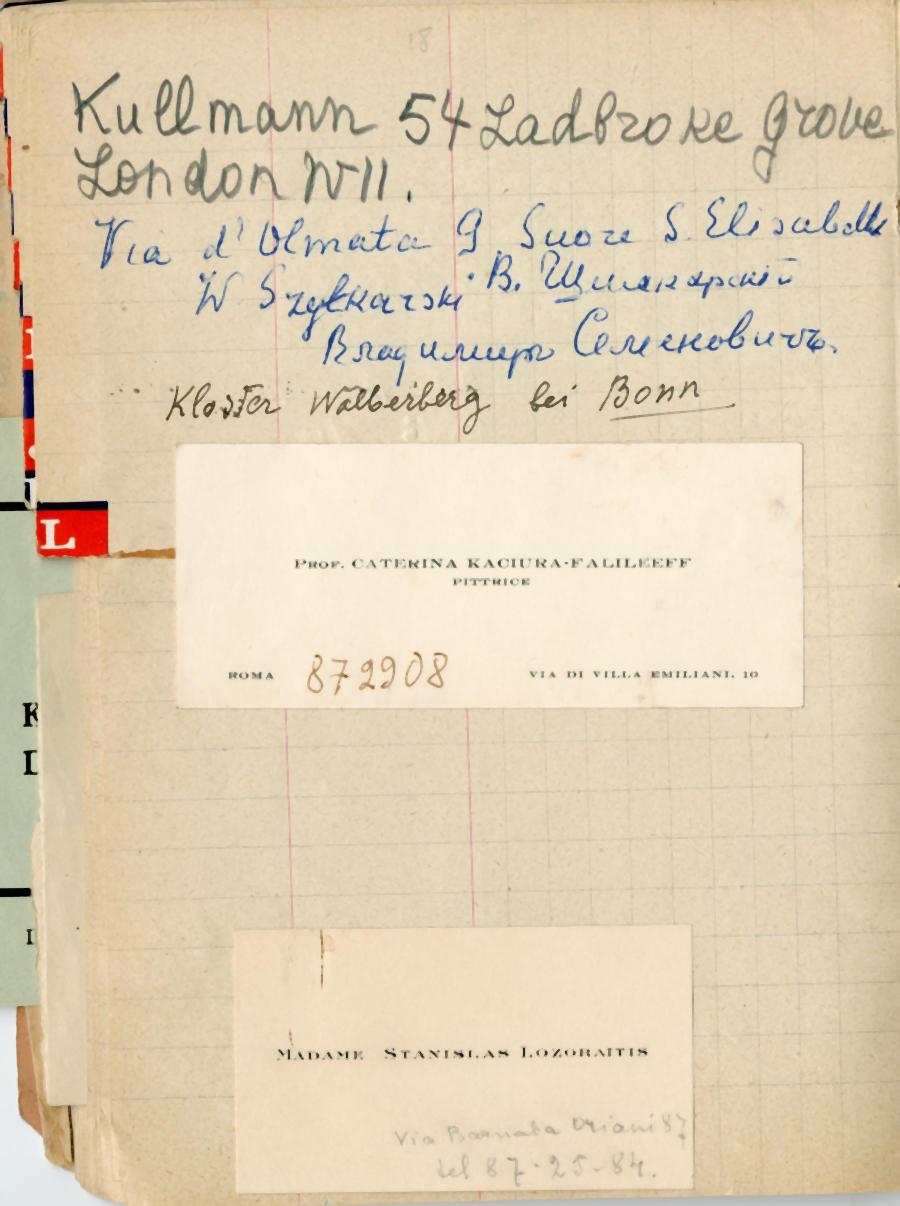 18
Kullmann 54 Ladbroke Grove
London W11.
Via d'Olmata 9 Suore S. Elisabetta
W Szylkarski В. Шилкарский
Владимиръ Семеновичъ.
Kloster Walberberg bei Bonn
L
PROF. CATERINA KACIURA-FALILEEFF
PITTRICE
ROMA 872908 VIA DI VILLA EMILIANI, 10
K
I
MADAME STANISLAS LOZORAITIS
Via Barnaba Oriani 87
tel 87-25-84.